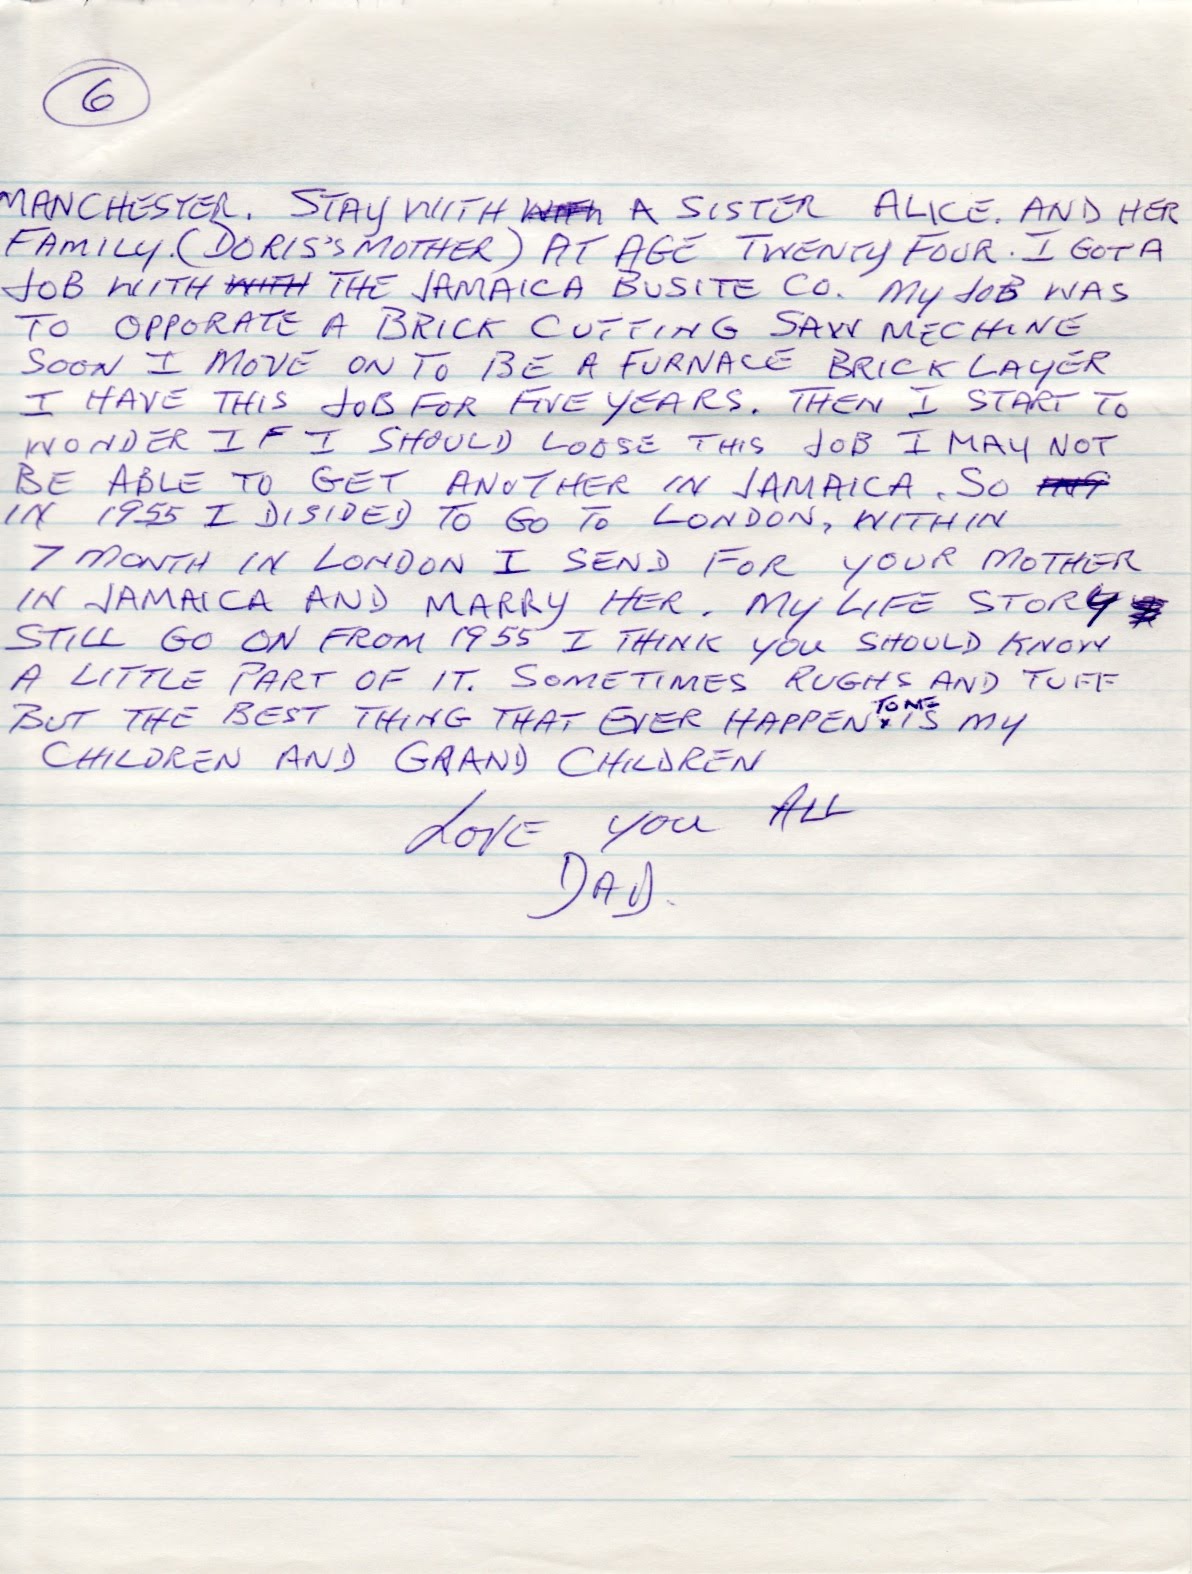 6
MANCHESTER. STAY WITH WITH A SISTER ALICE. AND HER
FAMILY. (DORIS'S MOTHER) AT AGE TWENTY FOUR. I GOT A
JOB WITH WITH THE JAMAICA BUSITE CO. MY JOB WAS
TO OPPORATE A BRICK CUTTING SAW MECHINE
SOON I MOVE ON TO BE A FURNACE BRICK LAYER
I HAVE THIS JOB FOR FIVE YEARS. THEN I START TO
WONDER IF I SHOULD LOOSE THIS JOB I MAY NOT
BE ABLE TO GET ANOTHER IN JAMAICA. SO
IN 1955 I DISIDED TO GO TO LONDON, WITHIN
7 MONTH IN LONDON I SEND FOR YOUR MOTHER
IN JAMAICA AND MARRY HER. MY LIFE STORY
STILL GO ON FROM 1955 I THINK YOU SHOULD KNOW
A LITTLE PART OF IT. SOMETIMES RUGHS AND TUFF
BUT THE BEST THING THAT EVER HAPPEN TO ME IS MY
CHILDREN AND GRAND CHILDREN
LOVE YOU ALL
DAD.